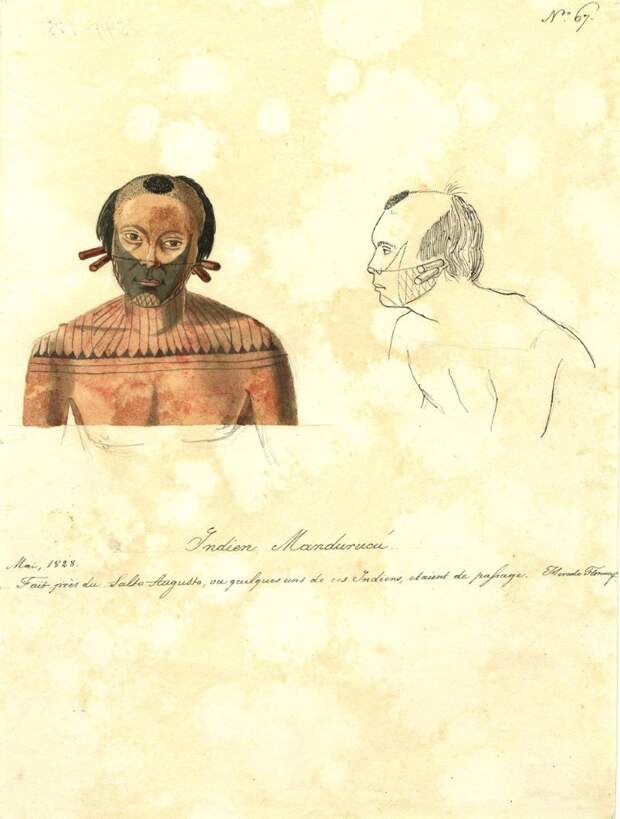 No. 67.
Indien Mandurucú.
Mai, 1828.
Fait près du Salto Augusto, ou quelques uns de ces Indiens, etaient de passage. Hercule Florence